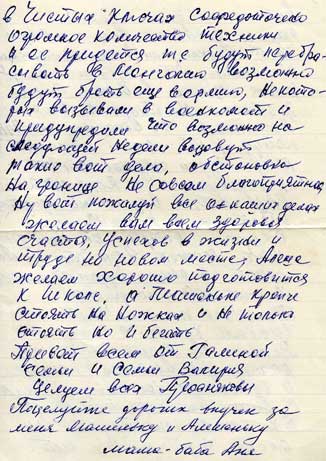 в Чистых Ключах сосредоточено
огромное количество техники
и ее придется т.е. будут перебра-
сывать в Монголию возможно
будут брать еще в армию, некото-
рых вызывали в военкомат и
предупредили что возможно на
следующей недели возовут
такие вот дела, обстановка
на границе не совсем благоприятная,
Ну вот пожалуй все о наших делах
желаем вам всем здоровья
счастья, успехов в жизни и
труде на новом месте, Алене
желаем хорошо подготовится
к школе, а Машеньке крепче
стоять на ножках и не только
стоять но и бегать
Привет всем от Галиной
семьи и семьи Валерия
Целуем всех
Поцелуйте дорогих внучек за
меня Машеньку и Аленоньку
мама-баба Аня